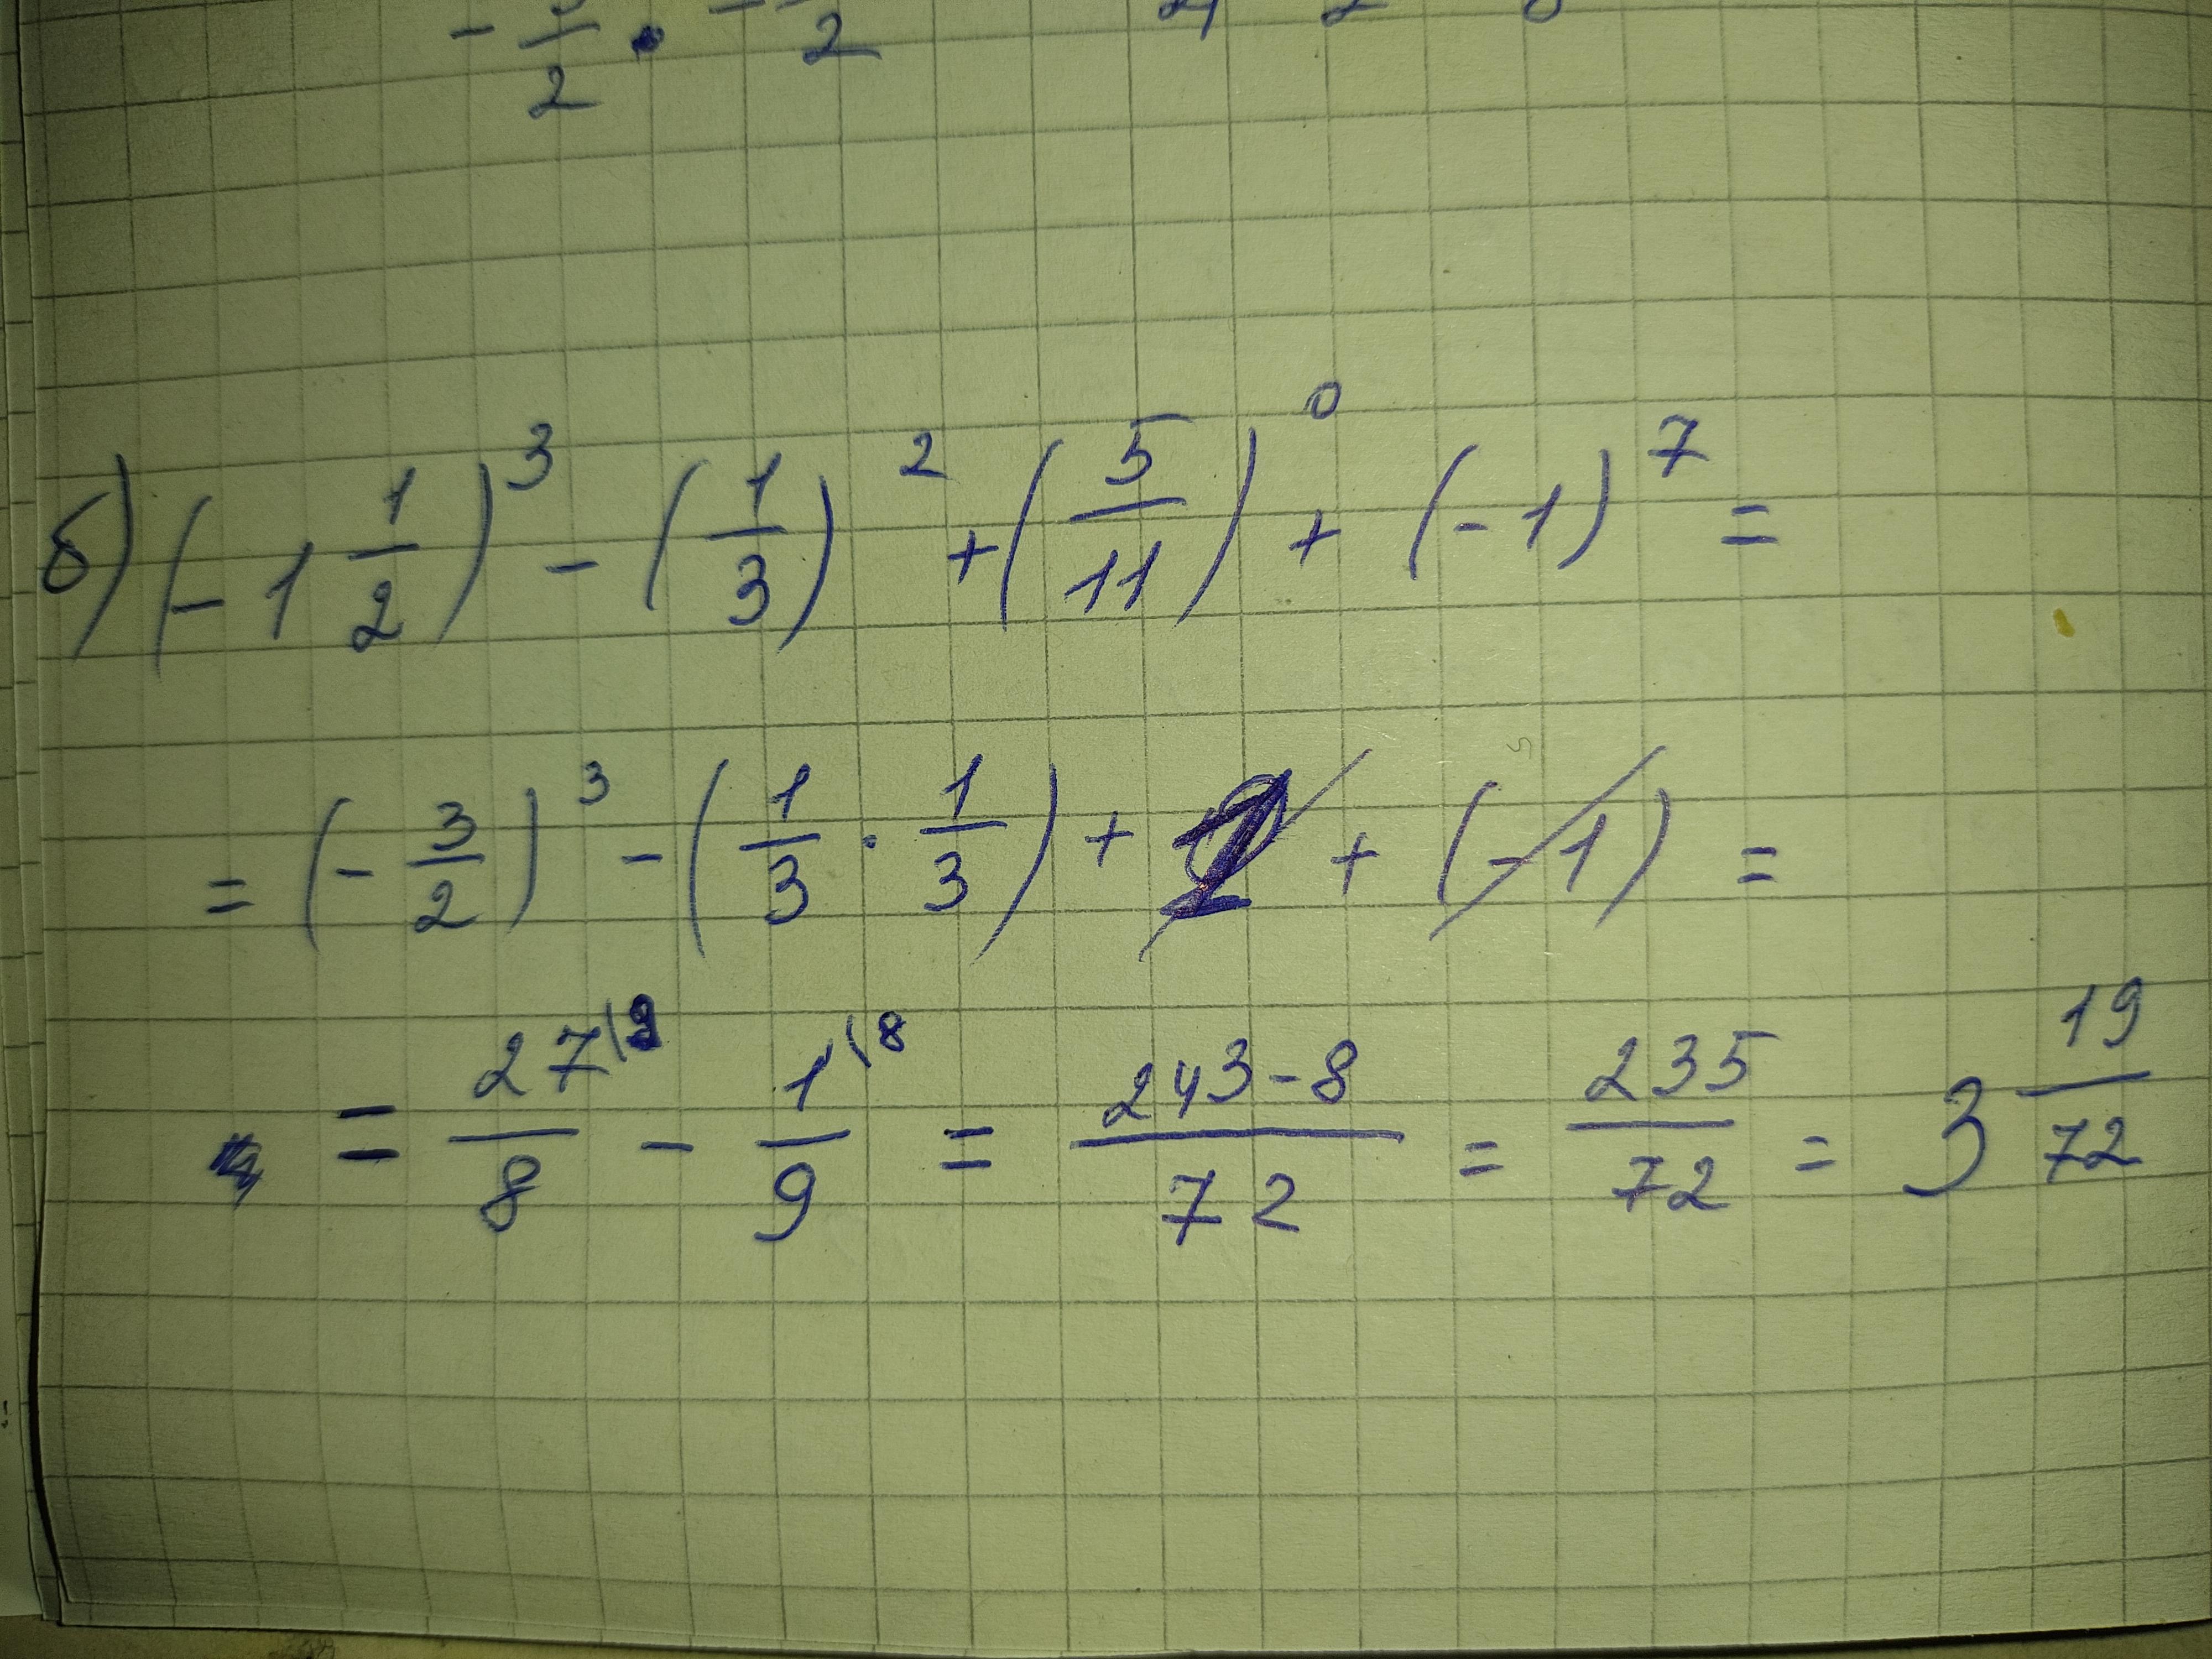 б) (-1 1/2)³ - (1/3)² + (5/11)⁰ + (-1)⁷ =
= (-3/2)³ - (1/3 · 1/3) + 1 + (-1) =
= 27\9/8 - 1\8/9 = 243-8/72 = 235/72 = 3 19/72